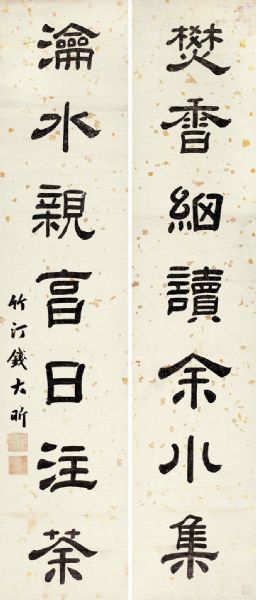 燓香細讀余小集
瀹水親亯日注茶
竹汀錢大昕